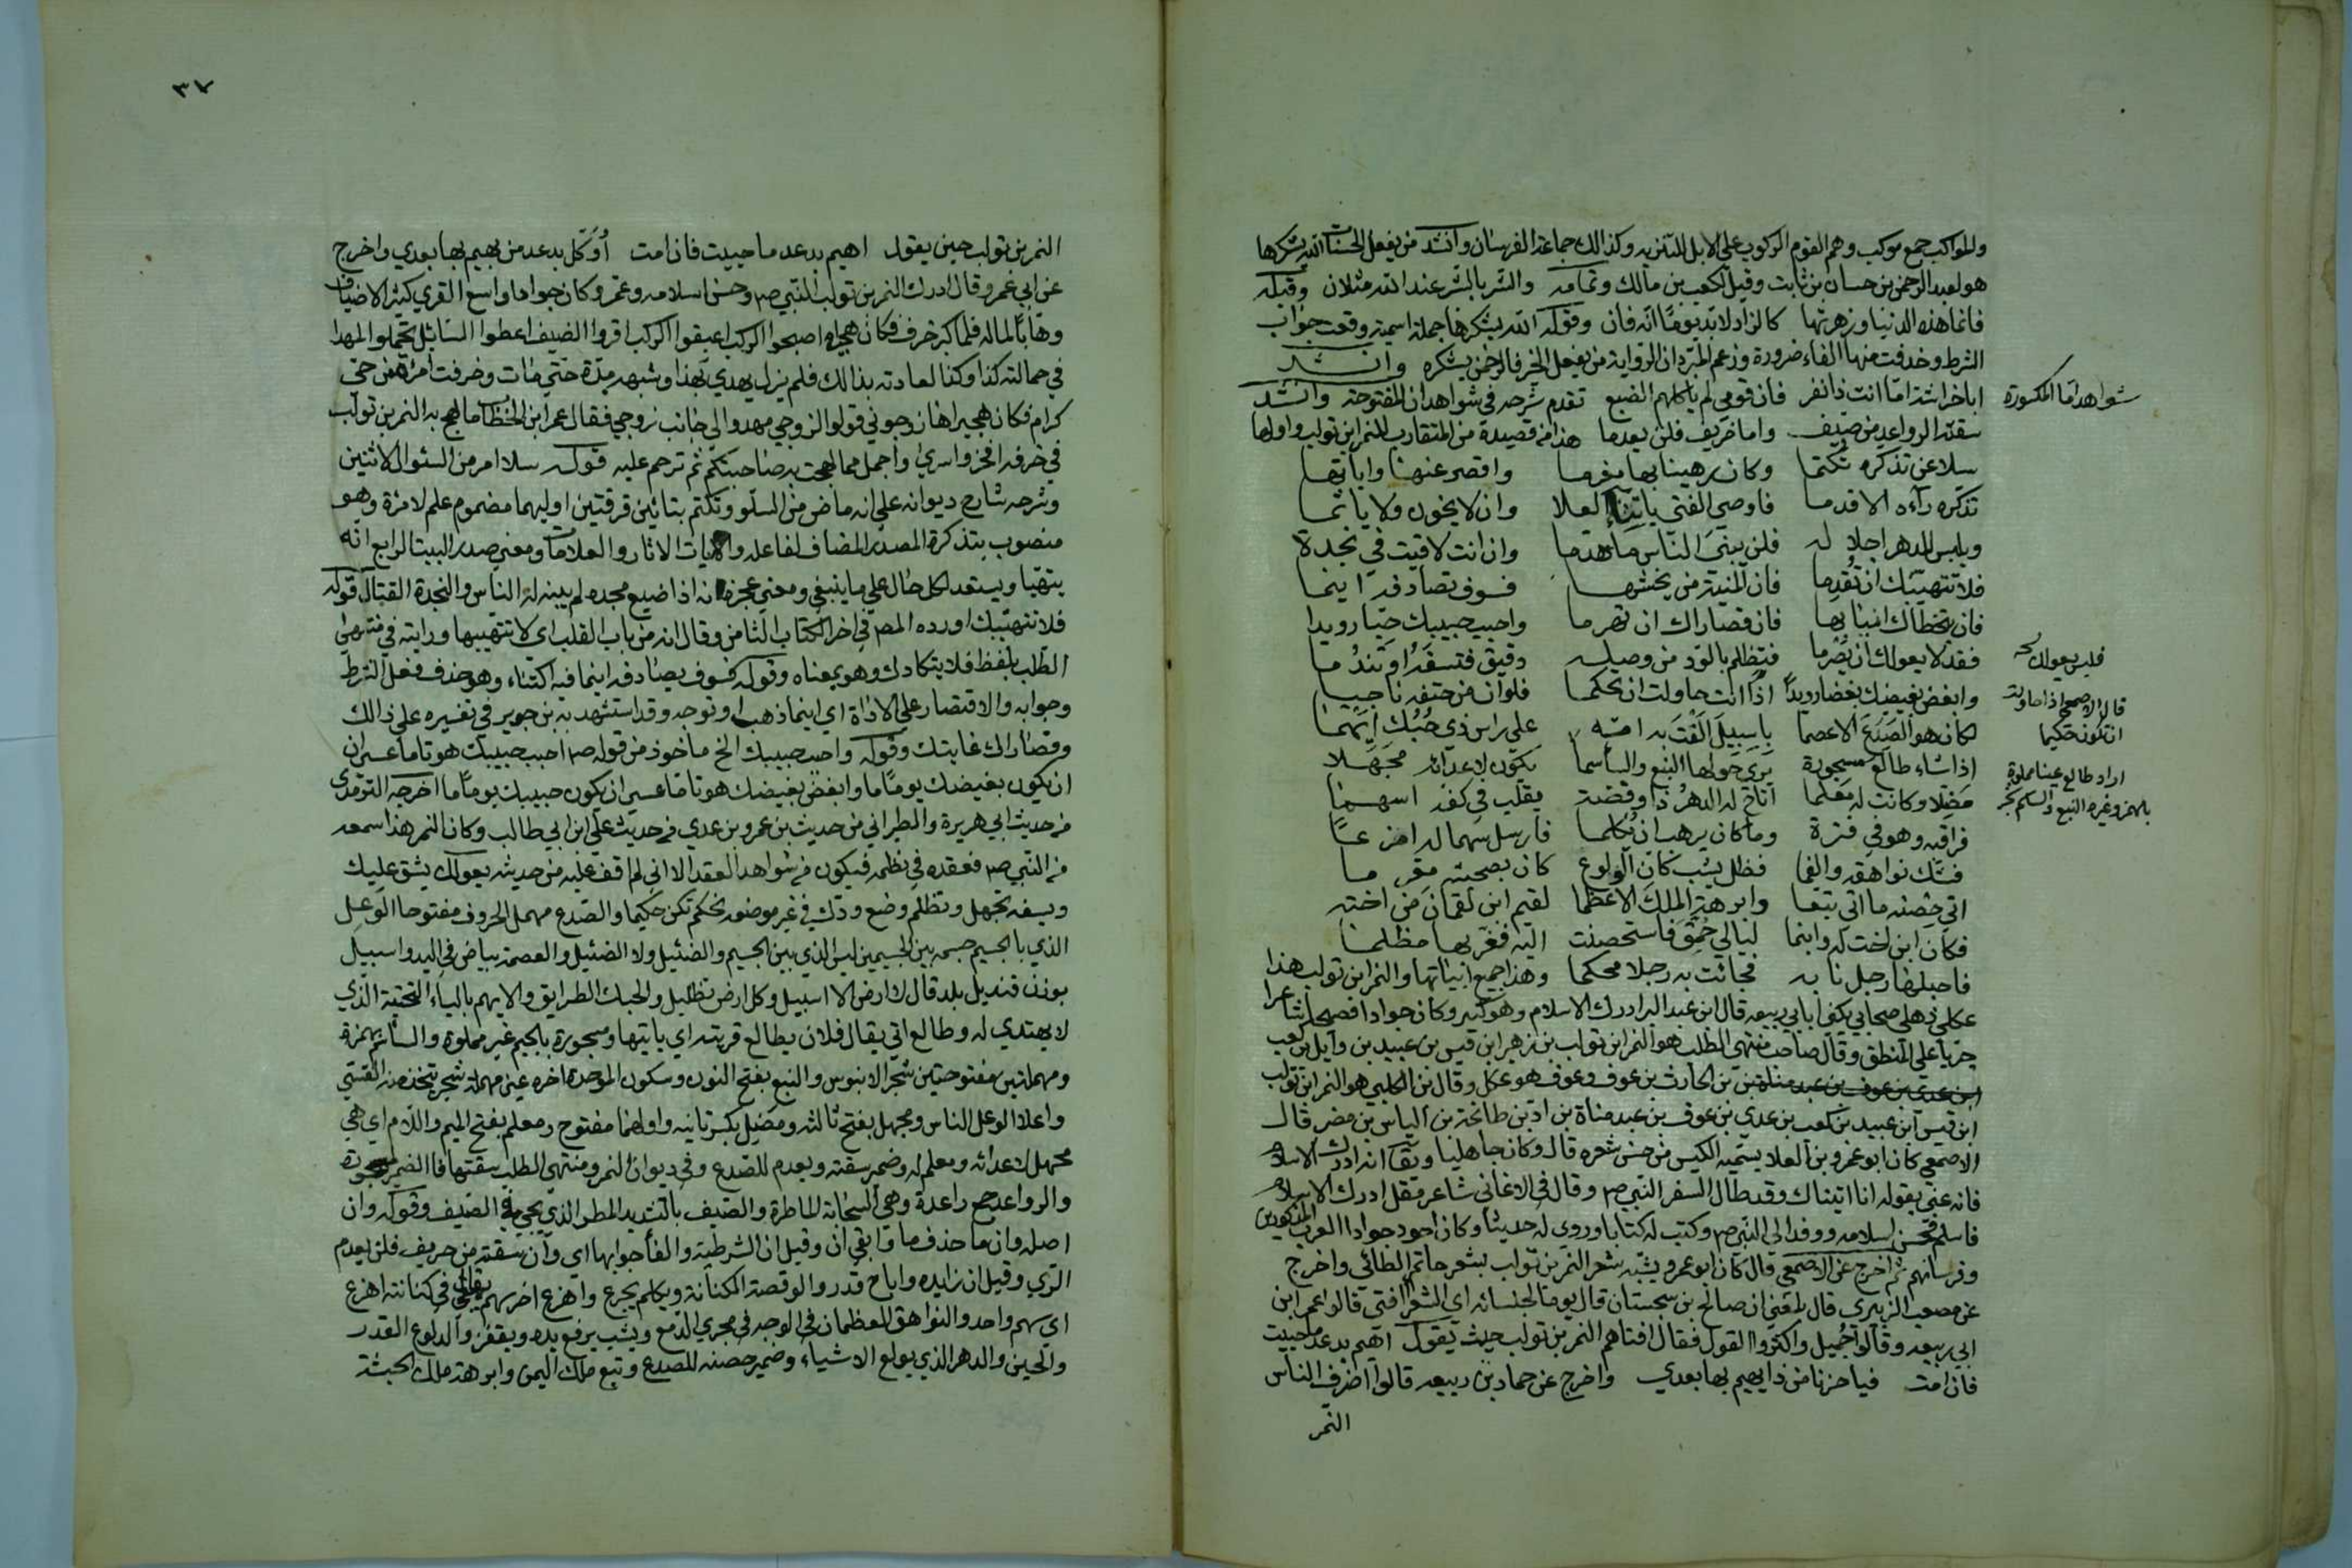 والمواكب جمع موكب وهم القوم الركوب على الابل للتنزيه وكذالك جماعة الفرسان وانشد من يفعل الحسنات الله يشكرها
هو لعبد الرحمن بن حسان بن ثابت وقيل لكعب بن مالك وتمامه والشر بالشر عند الله مثلان وقبله
فانما هذه الدنيا وزهرتها كالزاد لابد يوما انه فان وقوله الله يشكرها جملة اسمية وقعت جواب
الشرط وحذفت منها الفاء ضرورة وزعم المبرد ان الرواية من يفعل الخير فالرحمن يشكره وانشد
شواهد اما المكسورة
ابا خراشة اما انت ذا نفر فان قومي لم ياكلهم الضبع تقدم شرحه في شواهد ان المفتوحة وانشد
سقته الرواعد من صيف واما خريف فلن يعدما هذا من قصيدة من المتقارب للنمر ابن تولب واولها
سلا عن تذكره تكتما وكان رهينا بها مغرما واقصر عنها واياتها
تذكره داءه الاقدما فاوصي الفتي بابتناء العلا وان لا يخون ولا ياثما
ويلبس للدهر اجلاله فلن يبني الناس ما هدما وان انت لاقيت في نجدة
فلا تتهيبك ان تقدما فان المنية من يخشها فسوف تصادفه اينما
فان تخطاك اسبابها فان قصاراك ان تهرما واحبب حبيبك حبا رويدا
فقد لا يعولك ان تصرما فتظلم بالود من وصله دقيق فتسفه او تندما
فليس يعولك نخه
وابغض بغيضك بغضا رويدا اذا انت حاولت ان تحكما فلو ان من حتفه ناجيا
قال الاصمعي اذا حاولت
ان تكون حكيما
لكان هو الصدع الاعصما باسبيل القت به امه على راس ذي حبك ايهما
اذا شاء طالع مسجورة يري حولها النبع والسأسما تكون لاعدائه مجهلا
اراد طالع عينا مملوة
مضلا وكانت له معلما اتاح له الدهر ذا وفضة يقلب في كفه اسهما
فراقبه وهو في قترة وما كان يرهب ان يكلما فارسل سهما له اهزعا
فشك نواهقه والفما فظل يشب كان الولوع كان بصحته مغرما
اتي حصنه ما اتي تبعا وابرهة الملك الاعظما لقيم ابن لقمان من اخته
فكان ابن اخت له وابنما ليالي حمق فاستحصنت اليه فغر بها مظلما
فاحبلها رجل نابه فجائت به رجلا محكما وهذا جميع ابياتها والنمر ابن تولب هذا
عكلي ذهلي صحابي يكني ابا ربيعه قال ابن عبد البر ادرك الاسلام وهو كبير وكان جوادا فصيحا شاعرا
جريا على المنطق وقال صاحب منتهى الطلب هو النمر ابن تولب بن زهير ابن قيس بن عبيد بن وايل بن كعب
بن الحارث بن عوف وعوف هو عكل وقال بن الكلبي هو النمر ابن تولب
ابن قيس ابن عبيد بن كعب بن عدي بن عوف بن عبد مناة بن اد بن طابخة بن الياس بن مضر قال
الاصمعي كان ابو عمرو بن العلا يسميه الكيس من حسن شعره قال وكان جاهليا ويقال انه ادرك الاسلام
فانه عني بقوله انا اتيناك وقد طال السفر النبي صم وقال في الاغاني شاعر مقل ادرك الاسلام
فاسلم فحسن اسلامه ووفد الى النبي صم وكتب له كتابا وروي له حديثا وكان احد جوادا العرب المذكورين
وفرسانهم ثم اخرج عن الاصمعي قال كان ابو عمرو يشبه شعر النمر بن تولب بشعر حاتم الطائي واخرج
عن مصعب الزبيري قال بلغني ان صالح بن سجستان قال يوما لجلسائه اي الشعراء افتى قالوا عمر ابن
ابي ربيعه وقالوا جميل واكثروا القول فقال افتاهم النمر بن تولب حيث يقول اهيم بدعد ما حييت
فان امت فيا حزنا من ذا يهيم بها بعدي واخرج عن حماد بن ربيعه قالوا اظرف الناس
النمر
٣٧
النمر بن تولب حين يقول اهيم بدعد ما حييت فان امت أوكل بدعد من يهيم بها بعدي واخرج
عن ابي عمرو قال ادرك النمر بن تولب النبي صم وحسن اسلامه وعمر وكان جوادا واسع القري كثير الاضياف
وهابا لماله فلما كبر خرف فكان هجيراه اصبحوا الركب اغبقوا الركب اقروا الضيف اعطوا السائل تحملوا لهذا
في حمالته كذا وكذا لعادته بذالك فلم يزل يهذي بهذا وشبهه مدة حتى مات وخرفت امرأة من حي
كرام فكان هجيراها زوجوني قولوا لزوجي مهدوا الي جانب زوجي فقال عمر ابن الخطاب ما لهج به النمر بن تولب
في خرفه افخر واسري واجمل مما لهجت به صاحبتكم ثم ترحم عليه قوله سلا امر من السئوال الاثنين
وشرحه شارح ديوانه علي انه ماض من السلو وتكتم بتائين فرقتين اوليهما مضموم علم لامرة وهو
منصوب بتذكرة المصدر المضاف لفاعله والايات الاثار والعلامات ومعني صدر البيت الرابع انه
يتهيا ويستعد لكل حال علي ما ينبغي ومعني عجزه انه اذا ضيع مجده لم يبينه له الناس والنجدة القتال قوله
فلا تتهيبك اورده المص في اخر الكتاب الثامن وقال انه من باب القلب اي لا تتهيبها ورايته في منتهي
الطلب بلفظ فلا يتكادك وهو بمعناه وقوله فسوف يصادفه اينما فيه اكتفاء وهو حذف فعل الشرط
وجوابه والاقتصار علي الاداة اي اينما ذهب او توجه وقد استشهد به بن جرير في تفسيره علي ذالك
وقصاراك غايتك وقوله واحبب حبيبك الخ ماخوذ من قوله صم احبب حبيبك هونا ما عسي ان
ان يكون بغيضك يوما ما وابغض بغيضك هونا ما عسي ان يكون حبيبك يوما ما اخرجه الترمذي
من حديث ابي هريرة والطبراني من حديث بن عمرو بن عدي من حديث علي ابن ابي طالب وكان النمر هذا سمعه
من النبي صم فعقده في نظمه فيكون من شواهد العقد الا اني لم اقف عليه من حديثه يعولك يشق عليك
ويسفه تجهل وتظلم وضع ودك في غير موضعه تحكم تكن حكيما والصدع مهمل الحروف مفتوحا الوعل
الذي بالجسيم جسمه بين الجسيمين ليس الذي بين الجسيم والضئيل ولا الضئيل والعصمة بياض في اليد واسبيل
بوزن قنديل بلد قال لا ارض الا اسبيل وكل ارض تظليل والحبك الطرايق والايهم بالياء التحتية الذي
لا يهتدي له وطالع اتي يقال فلان يطالع قريته اي ياتيها ومسجورة بالجيم غير مملوة والسأسم بهمزة
ومهملتين مفتوحتين شجر الابنوس والنبع بفتح النون وسكون الموحدة اخره عين مهملة شجر يتخذ منه القسي
واعداء الوعل الناس ومجهل بفتح ثالثه ومضل بكسر ثانيه واولهما مفتوح ومعلم بفتح الميم واللام اي هي
مجهل لاعدائه ومعلم له وضمير سقته ويعدم للصدع وفي ديوان النمر ومنتهي الطلب سقتها فالضمير لمسجورة
والرواعد جمع راعدة وهي السحابة الماطرة والصيف بالتشديد المطر الذي يجيء في الصيف وقوله وان
اصله وان ما حذف ما وابقي ان وقيل ان الشرطية والفا جوابها اي وان سقته من خريف فلن يعدم
الري وقيل ان زايده واتاح قدر والوفضة الكنانة ويكلم يجرح واهزع اخر سهم يقال ما في كنانته اهزع
اي سهم واحد والنواهق العظمان في الوجه في مجري الدمع ويشب يرفع يديه ويقفز والولوع القدر
والحين والدهر الذي يولع الاشياء وضمير حصنه للصدع وتبع ملك اليمن وابرهة ملك الحبشة